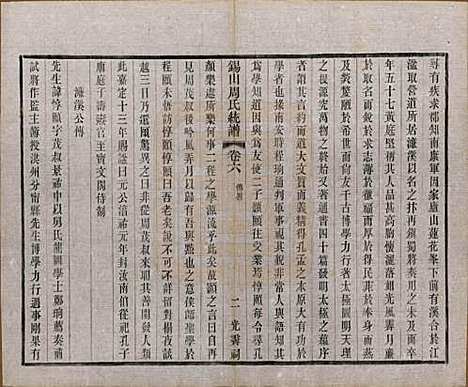 尋有疾求郡知南康軍因家廬山蓮花峯下前有溪合於江
濂取營道所居濂溪以名之再鎮蜀將奏用之未及而卒
年五十七黃庭堅稱其人品甚高胸懷灑落如光風霽月廉
於取名而銳於求志薄於徼福而厚於得民菲於奉身而燕
及煢嫠陋於希世而尚友千古博學力行著太極圖明天理
之根源究萬物之終始又著通書四十篇發明太極之蘊序
者謂其言約而道大文質而義精得孔孟之本原大有功於
學者也掾南安時程珦通判軍事視其氣貌非常人與語知其
為學知道因與為友使二子顥頤往受業焉惇頤每令尋孔
錫山周氏統譜
卷六
傳畧
二
光霽祠
顏樂處所樂何事二程之學源流乎此矣故顥之言曰自再
見周茂叔後吟風弄月以歸有吾與點也之意侯師聖學於
程頤未悟訪惇頤惇頤曰吾老矣說不可不詳留對榻夜談
越三日乃還頤驚異之曰非從周茂叔來耶其善開發人類
此嘉定十三年賜諡曰元公淳祐元年封汝南伯從祀孔子
廟庭子壽燾官至寶文閣待制
濂溪公傳
先生諱惇頤字茂叔弟以舅氏龍圖學士鄭珦蔭奏補
試將作監主簿授洪州分寧縣先生博學力行遇事剛果有